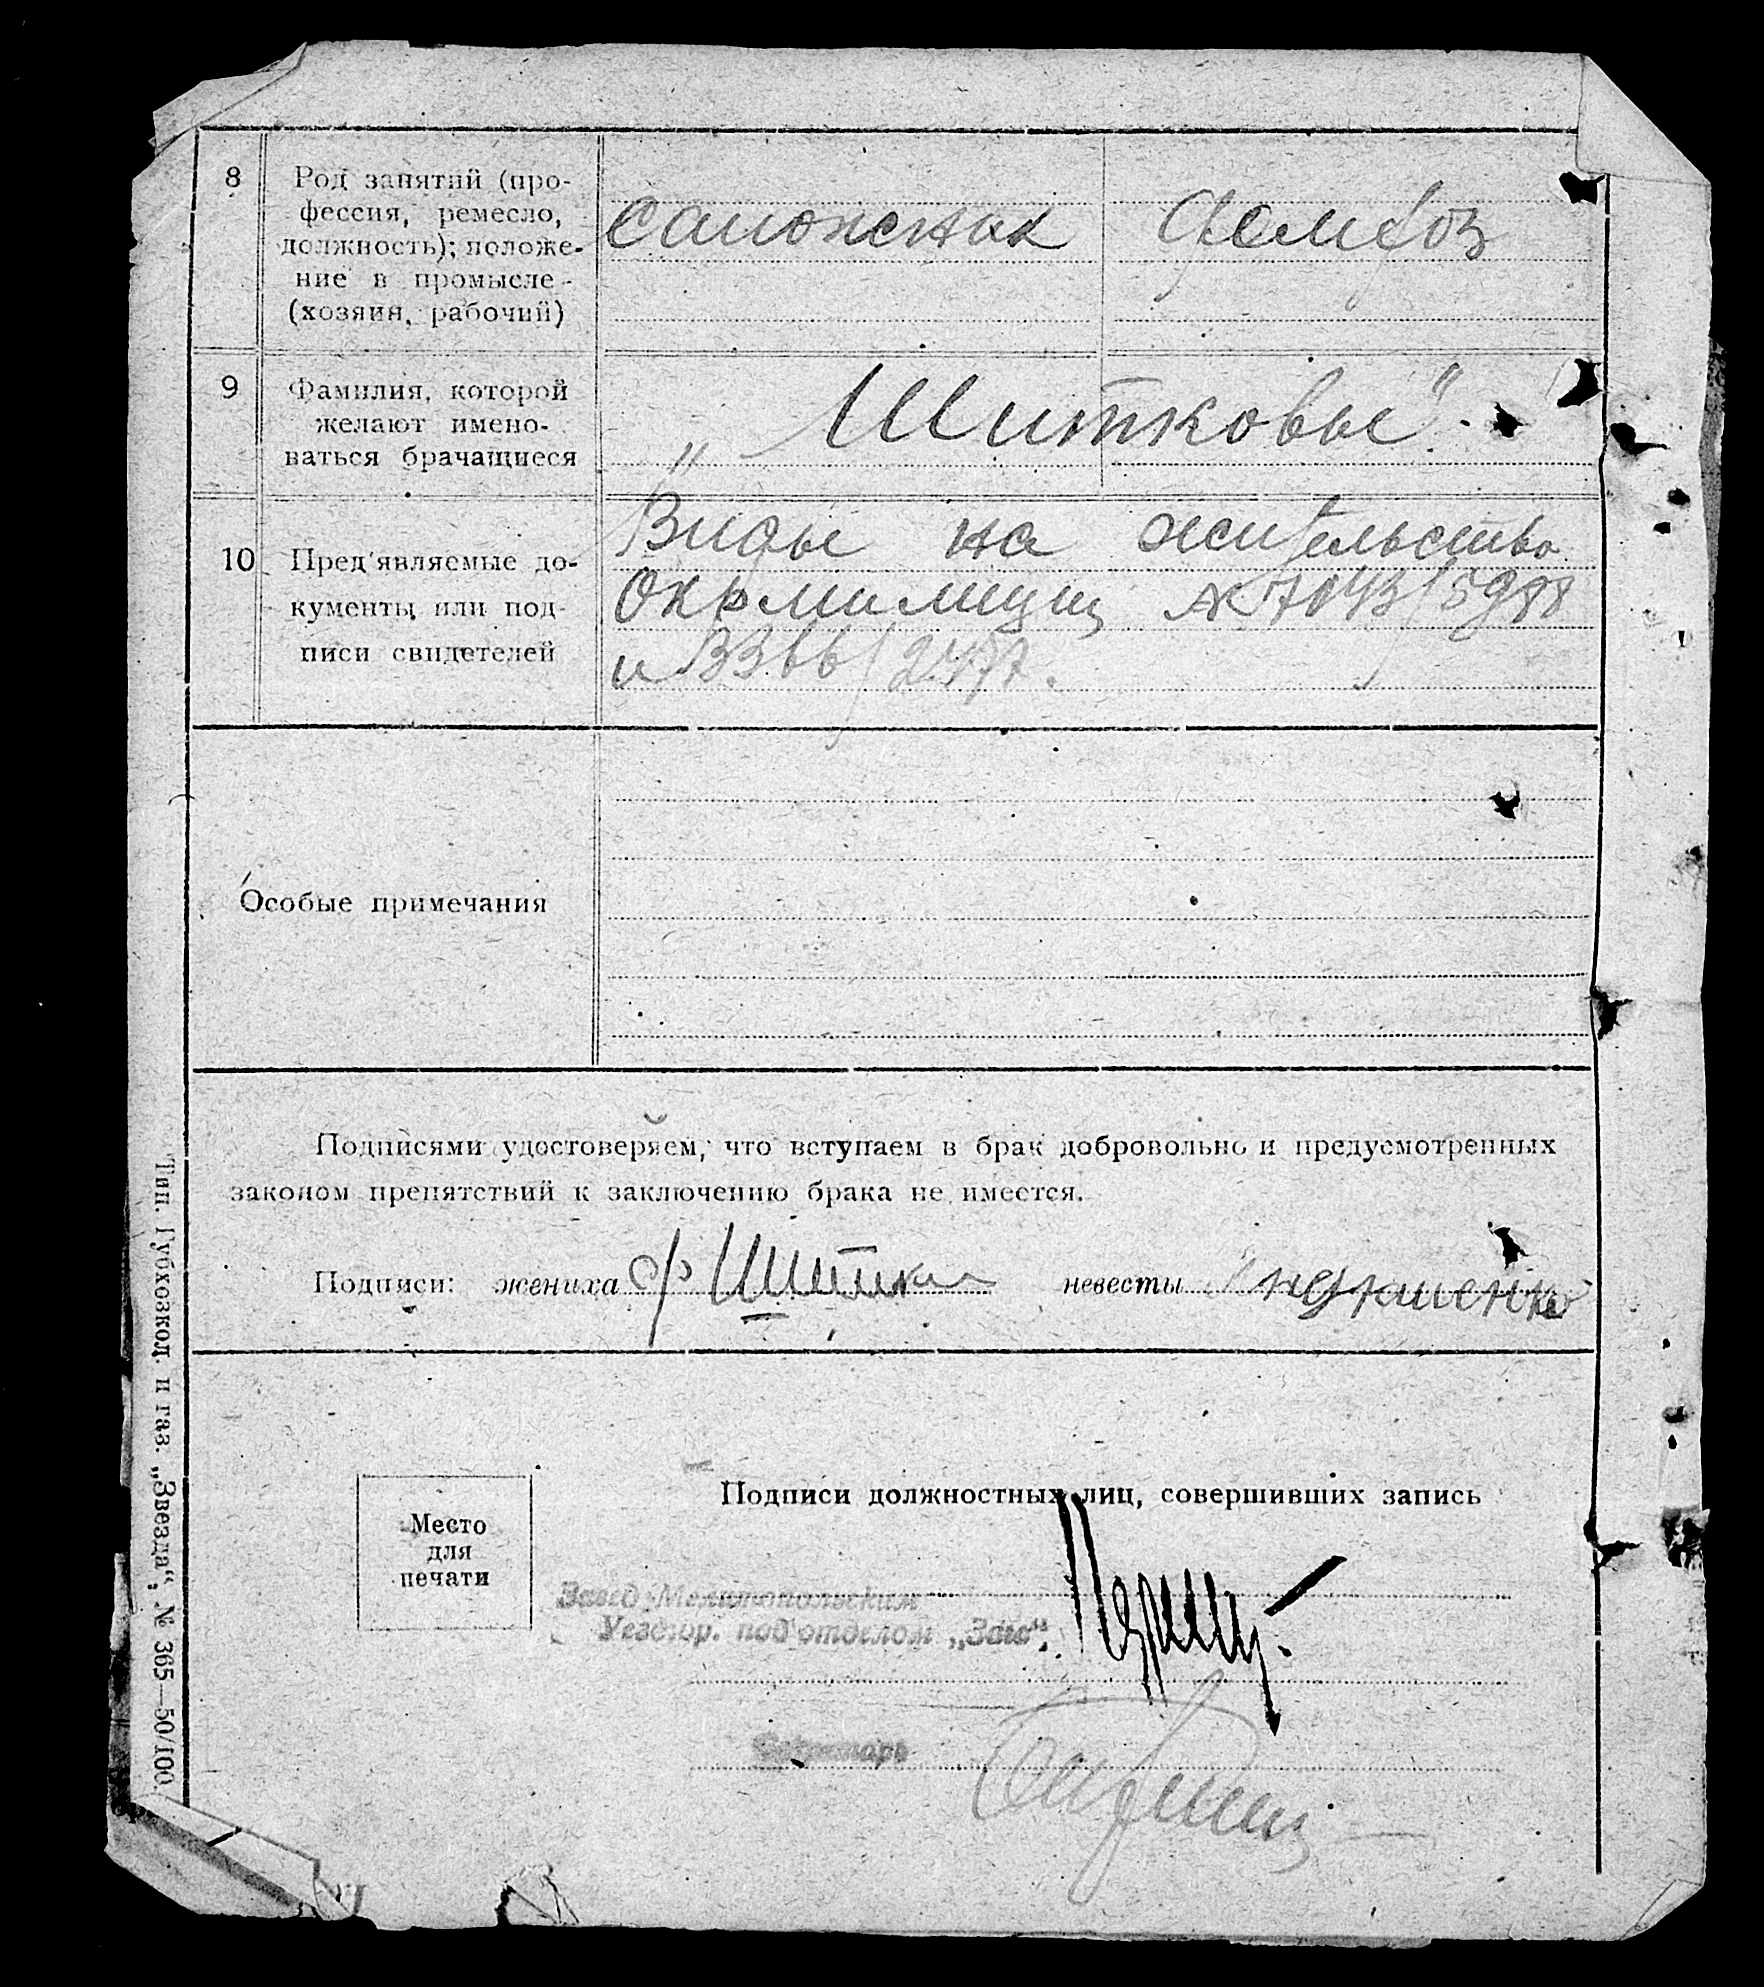 8
Род занятий (про-
фессия, ремесло,
должность); положе-
ние в промысле -
(хозяин, рабочий)
сапожник
домхоз
9
Фамилия, которой
желают имено-
ваться брачащиеся
„Шитковы"
10
Пред'являемые до-
кументы или под-
писи свидетелей
Виды на жительство
Окрмилиции №7043/5988
и 3366/2477.
Особые примечания
Подписями удостоверяем, что вступаем в брак добровольно и предусмотренных
законом препятствий к заключению брака не имеется.
Подписи: жениха невесты
Подписи должностных лиц, совершивших запись
Место
для
печати
Завед. Мелитопольским
Уездгор. под'отделом „Загс".
Секретарь
Тип. Губхозкод. и газ. „Звезда", № 365—50/100.